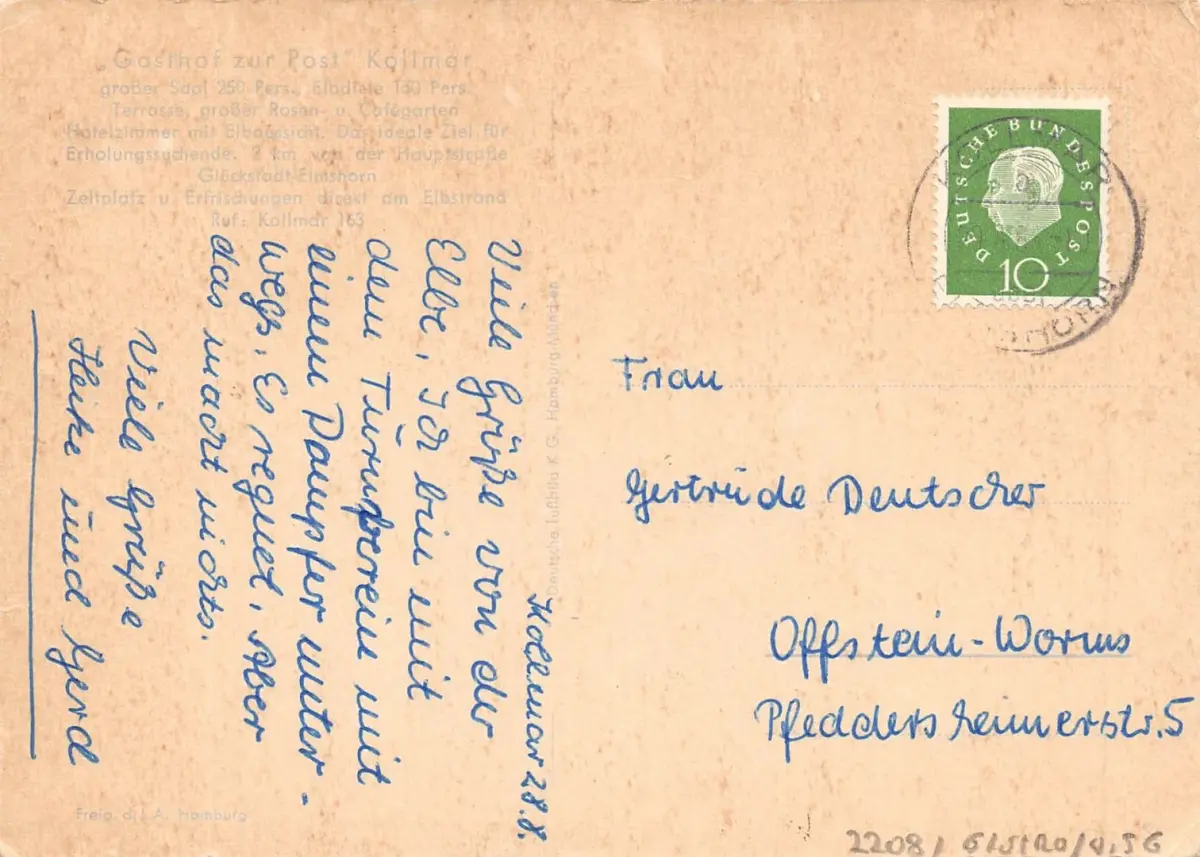 „Gasthof zur Post" Kollmar
großer Saal 250 Pers., Elbdiele 150 Pers.
Terrasse, großer Rosen- u. Cafégarten
Hotelzimmer mit Elbaussicht. Das ideale Ziel für
Erholungssuchende. 2 km von der Hauptstraße
Glückstadt-Elmshorn
Zeltplatz u. Erfrischungen direkt am Elbstrand
Ruf: Kollmar 163
Kollmar 28.8.
Viele Grüße von der
Elbe. Ich bin mit
dem Turnverein mit
einem Dampfer unter-
wegs. Es regnet. Aber
das macht nichts.
Viele Grüße
Heike und Gerd
Freig. d. L. A. Hamburg
Deutsche Luftbild K. G., Hamburg/München
DEUTSCHE BUNDESPOST
10
Frau
Gertrude Deutscher
Offstein-Worms
Pfeddersheimerstr. 5
2208/